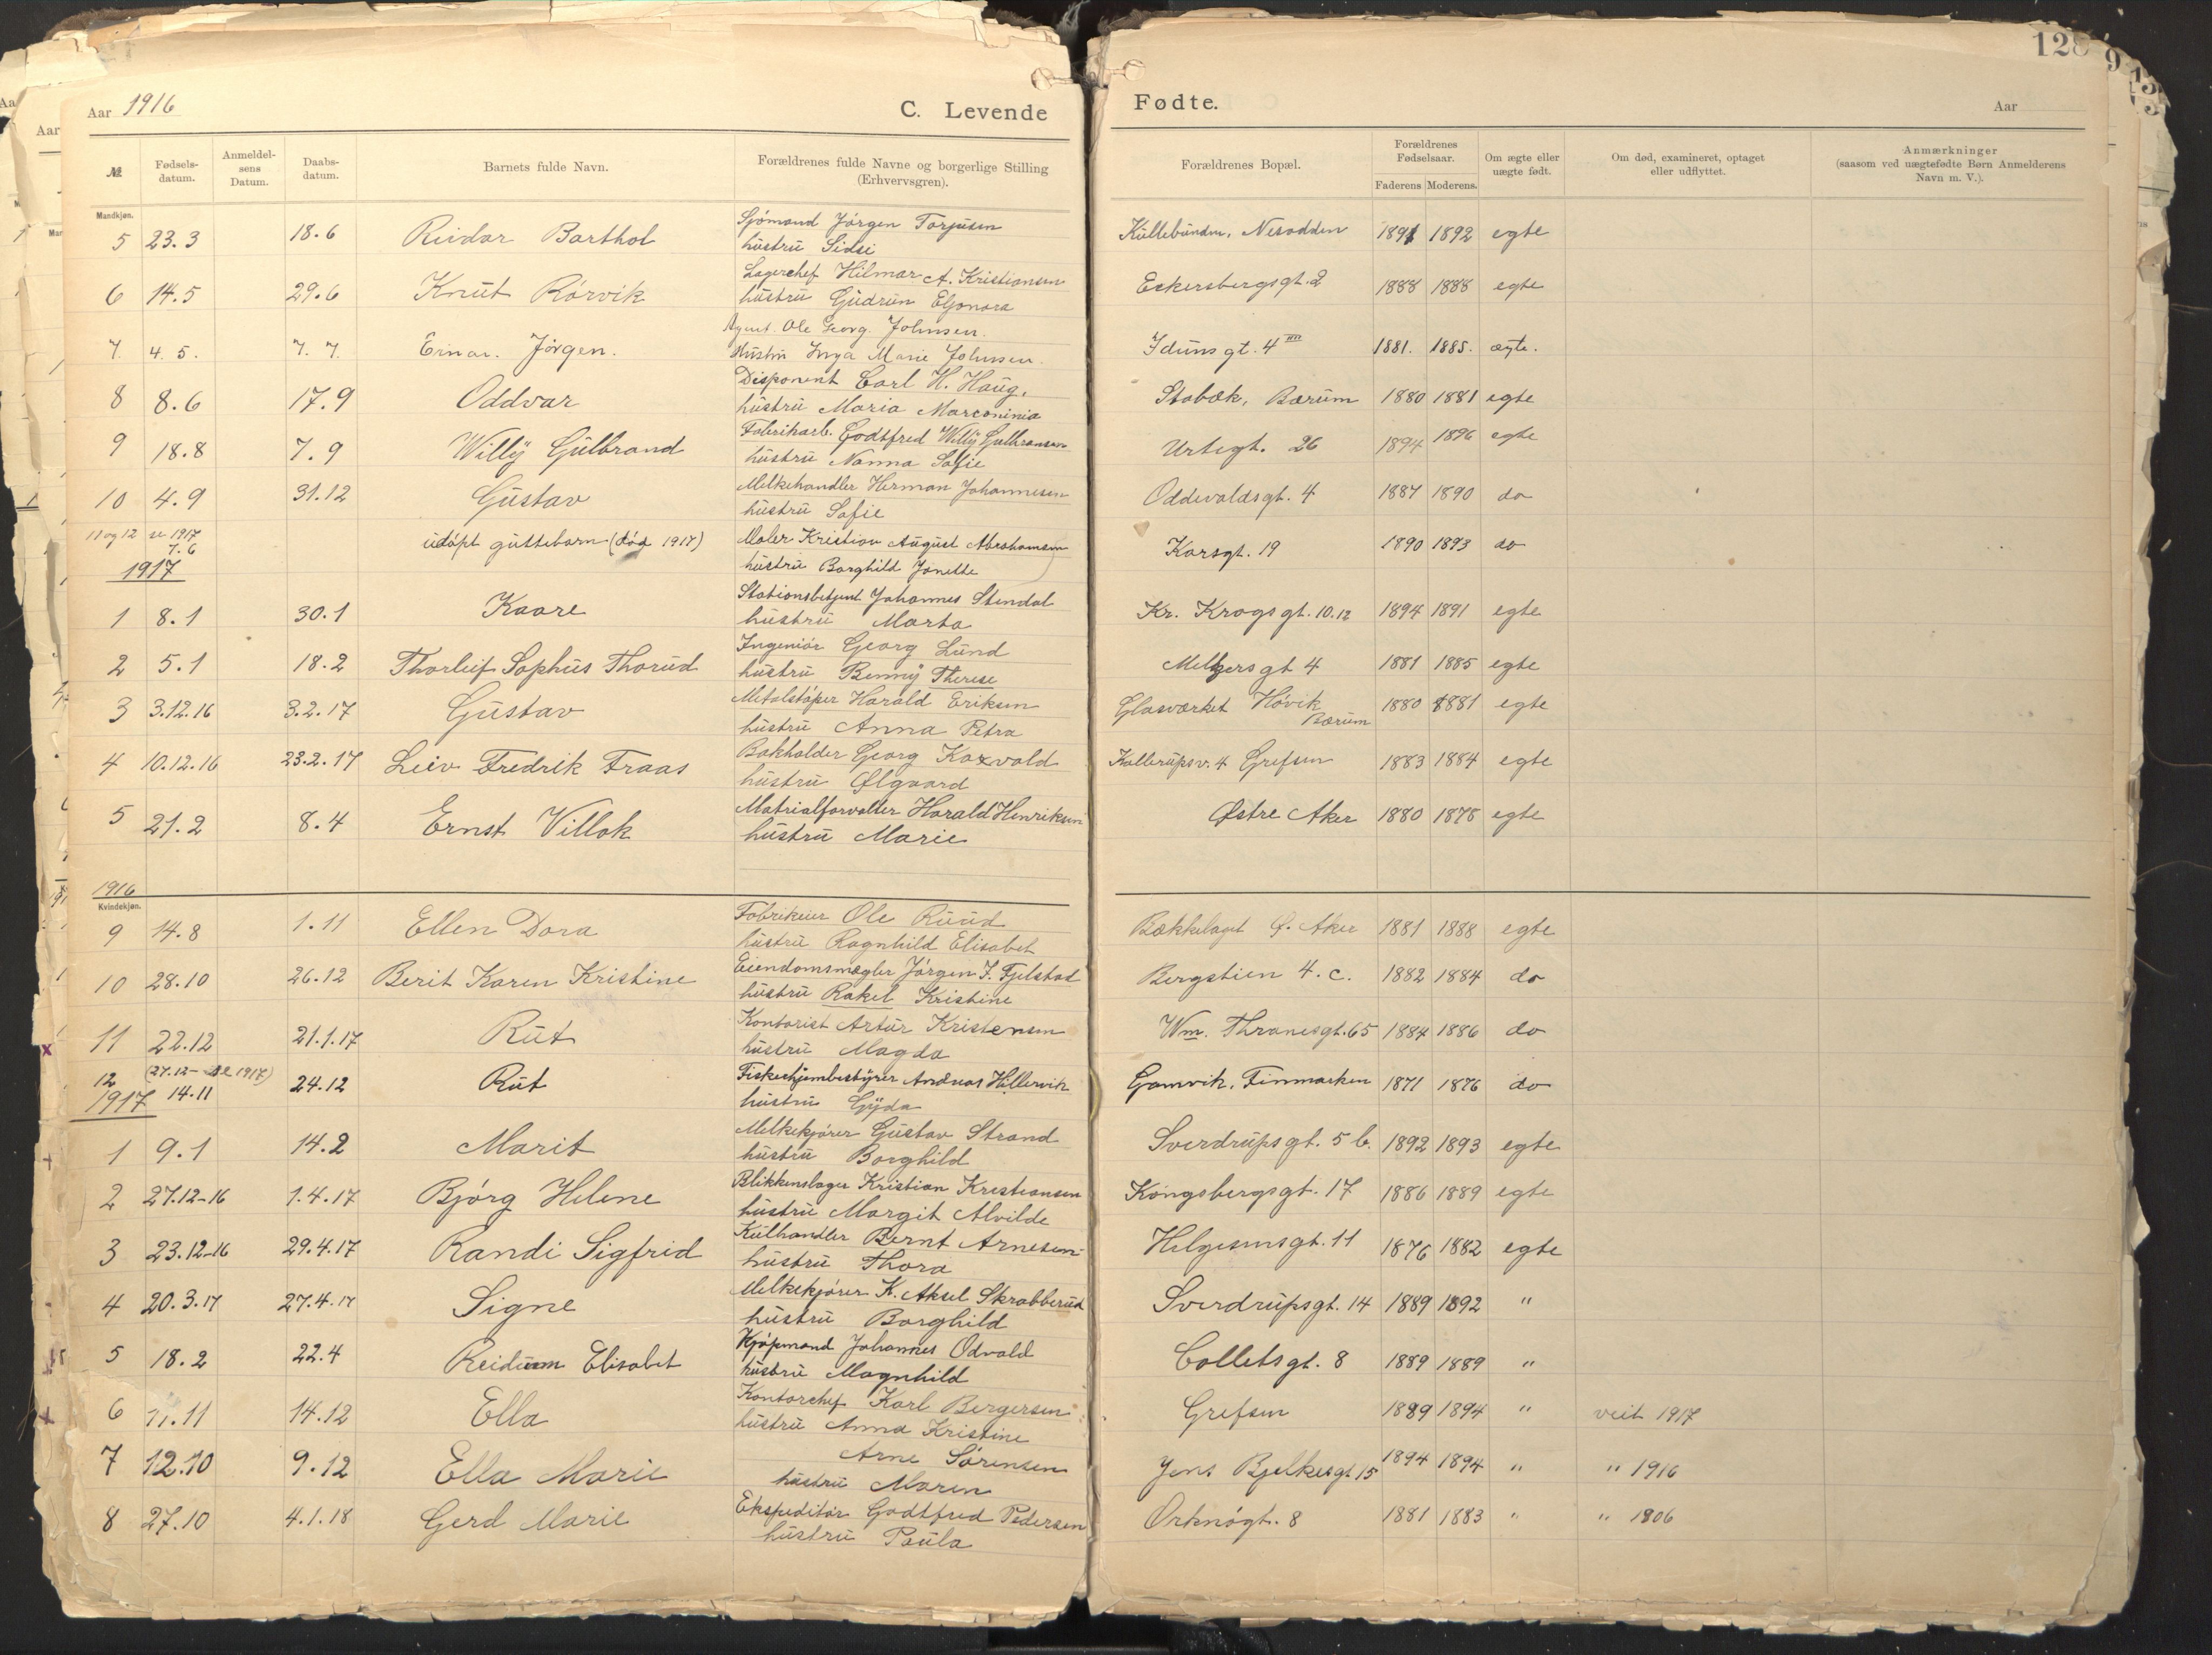 128
Aar 1916 C. Levende Fødte. Aar
№ Fødselsdatum. Anmeldelsens Datum. Daabsdatum. Barnets fulde Navn. Forældrenes fulde Navne og borgerlige Stilling (Erhvervsgren). Forældrenes Bopæl. Forældrenes Fødselsaar. Faderens Moderens. Om ægte eller uægte født. Om død, examineret, optaget eller udflyttet. Anmærkninger (saasom ved uægtefødte Børn Anmelderens Navn m. V.).
Mandkjøn.
5 23.3 18.6 Reidar Barthol Sjömand Jörgen Torjusen Küllebunden, Nesodden 1891 1892 egte
hustrü Sidsi
6 14.5 29.6 Knüt Rörvik Lagerchef Hilmar A. Kristiansen Eckersbergsgt. 2 1888 1888 egte
hüstrü Güdrün Eljonora
7. 4. 5. 7. 7. Einar. Jörgen. Agent. Ole Georg. Johnsen. Idunsgt. 4 III 1881. 1885. ægte.
Hustru Inga Marie Johnsen.
8 8.6 17.9 Oddvar Disponent Carl H. Haüg. Stabæk, Bærüm 1880 1881 egte
hüstrü Maria Marconinia
9 18.8 7.9 Willÿ Gülbrand Fabrikarb. Godtfred Willÿ Gulbransen Urtegt. 26 1894 1896 egte
hüstrü Nanna Sofie
10 4.9 31.12 Güstav Melkehandler Herman Johannesen Oddevaldsgt. 4 1887 1890 do
hüstrü Sofie
11 og 12 se 1917
7.6 üdöpt güttebarn (död 1917) Maler Kristian August Abrahamsen Korsgt. 19 1890 1893 do
1917 hüstrü Borghild Janette
1 8.1 30.1 Kaare Stationsbetjent Johannes Stendal Kr. Krogsgt. 10.12 1894 1891 egte
hüstrü Marta
2 5.1 18.2 Thorleif Sophüs Thorüd Ingeniör Georg Lünd Meltzersgt 4 1881 1885 egte
hüstrü Bennÿ Therese
3 3.12.16 3.2.17 Güstav Metalstöper Harald Eriksen Glasværket Hövik Bærüm 1880 1881 egte
hüstrü Anna Petra
4 10.12.16 23.2.17 Leiv Fredrik Fraas Bokholder Georg Kaxvald Kallerüpsv. 4 Grefsen 1883 1884 egte
hüstrü Ølgaard
5 21.2 8.4 Ernst Villok Matrialforvalter Harald Henriksen Østre Aker 1880 1878 egte
hüstrü Marie
1916
Kvindekjøn.
9 14.8 1.11 Ellen Dora Fabrikeier Ole Rüüd Bækkelaget Ø. Aker 1881 1888 egte
hüstrü Ragnhild Elisabet
10 28.10 26.12 Berit Karen Kristine Eiendomsmægler Jörgen J. Fjelstad Bergstien 4. c. 1882 1884 do
hüstrü Rakel Kristine
11 22.12 21.1.17 Rüt Kontorist Artür Kristensen Wm. Thranesgt. 65 1884 1886 do
hüstrü Magda
12 (27.12 - se 1917)
14.11 24.12 Rüt Fiskehjembestÿrer Andreas Hillervik Gamvik, Finmarken 1871 1876 do
1917 hüstrü Gÿda
1 9.1 14.2 Marit Melkekjörer Güstav Strand Sverdrüpsgt. 5 b. 1892 1893 egte
hüstrü Borghild
2 27.12-16 1.4.17 Bjórg Helene Blikkenslager Kristian Krestiansen Kongsbergsgt. 17 1886 1889 egte
hüstrü Margit Alvilde
3 23.12-16 29.4.17 Randi Sigfrid Külhandler Bernt Arnesen Helgesensgt. 11 1876 1882 egte
hüstrü Thora
4 20.3.17 27.4.17 Signe Melkekjörer K. Aksel Skrabberüd Sverdrüpsgt. 14 1889 1892 "
hüstrü Borghild
5 18.2 22.4 Reidünn Elisabet Kjöpmand Johannes Odvald Colletsgt. 8 1889 1889 "
hüstrü Magnhild
6 11.11 14.12 Ella Kontorchef Karl Bergersen Grefsen 1889 1894 " veit 1917
hüstrü Anna Kristine
7 12.10 9.12 Ella Marie Arne Sörensen Jens Bjelkesgt. 15 1894 1894 " " 1916
hüstrü Maren
8 27.10 4.1.18 Gerd Marie Ekspeditör Godtfred Pedersen Orknögt. 8 1881 1883 " " 1906
hüstrü Paüla